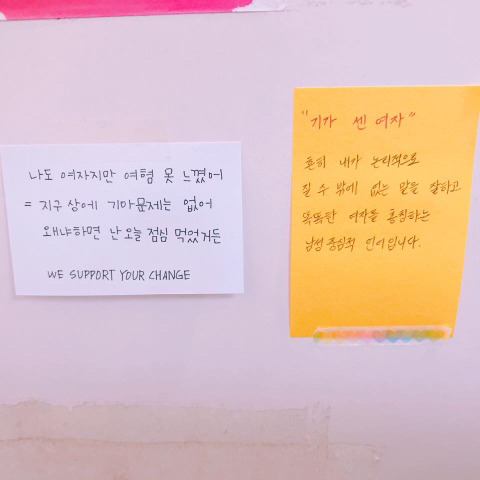 나도 여자지만 여혐 못 느꼈어
= 지구 상에 기아문제는 없어
왜냐하면 난 오늘 점심 먹었거든
WE SUPPORT YOUR CHANGE
"기가 센 여자"
흔히 내가 논리적으로
질 수 밖에 없는 말을 잘하고
똑똑한 여자를 통칭하는
남성 중심적 언어입니다.